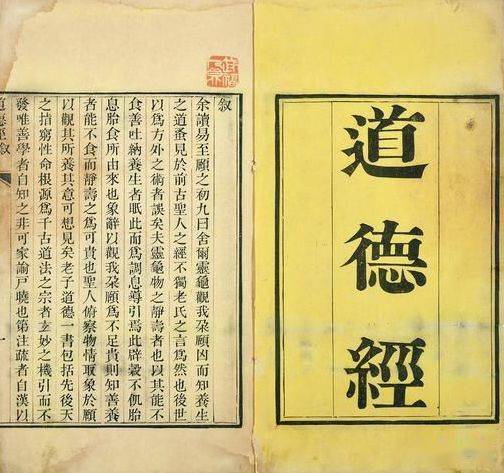 道德經
叙
余讀易至頤之初九曰舍爾靈龜觀我朵頤凶而知養生
之道蚤見於前古聖人之經不獨老氏之言爲然也後世
以爲方外之術者誤矣夫靈龜物之靜壽者也以其能不
食善吐納養生者眂此而爲調息導引焉此辟穀不飢胎
息胎食所由來也象辭以觀我朵頤爲不足貴則知善養
者能不食而靜壽之爲可貴也聖人俯察物情取象於頤
以觀其所養其意可想見矣老子道德一書包括先後天
之㨖窮性命根源爲千古道法之宗者玄妙之機引而不
發唯善學者自知之非可家諭戶曉也第注疏者自漢以
道德經叙
一